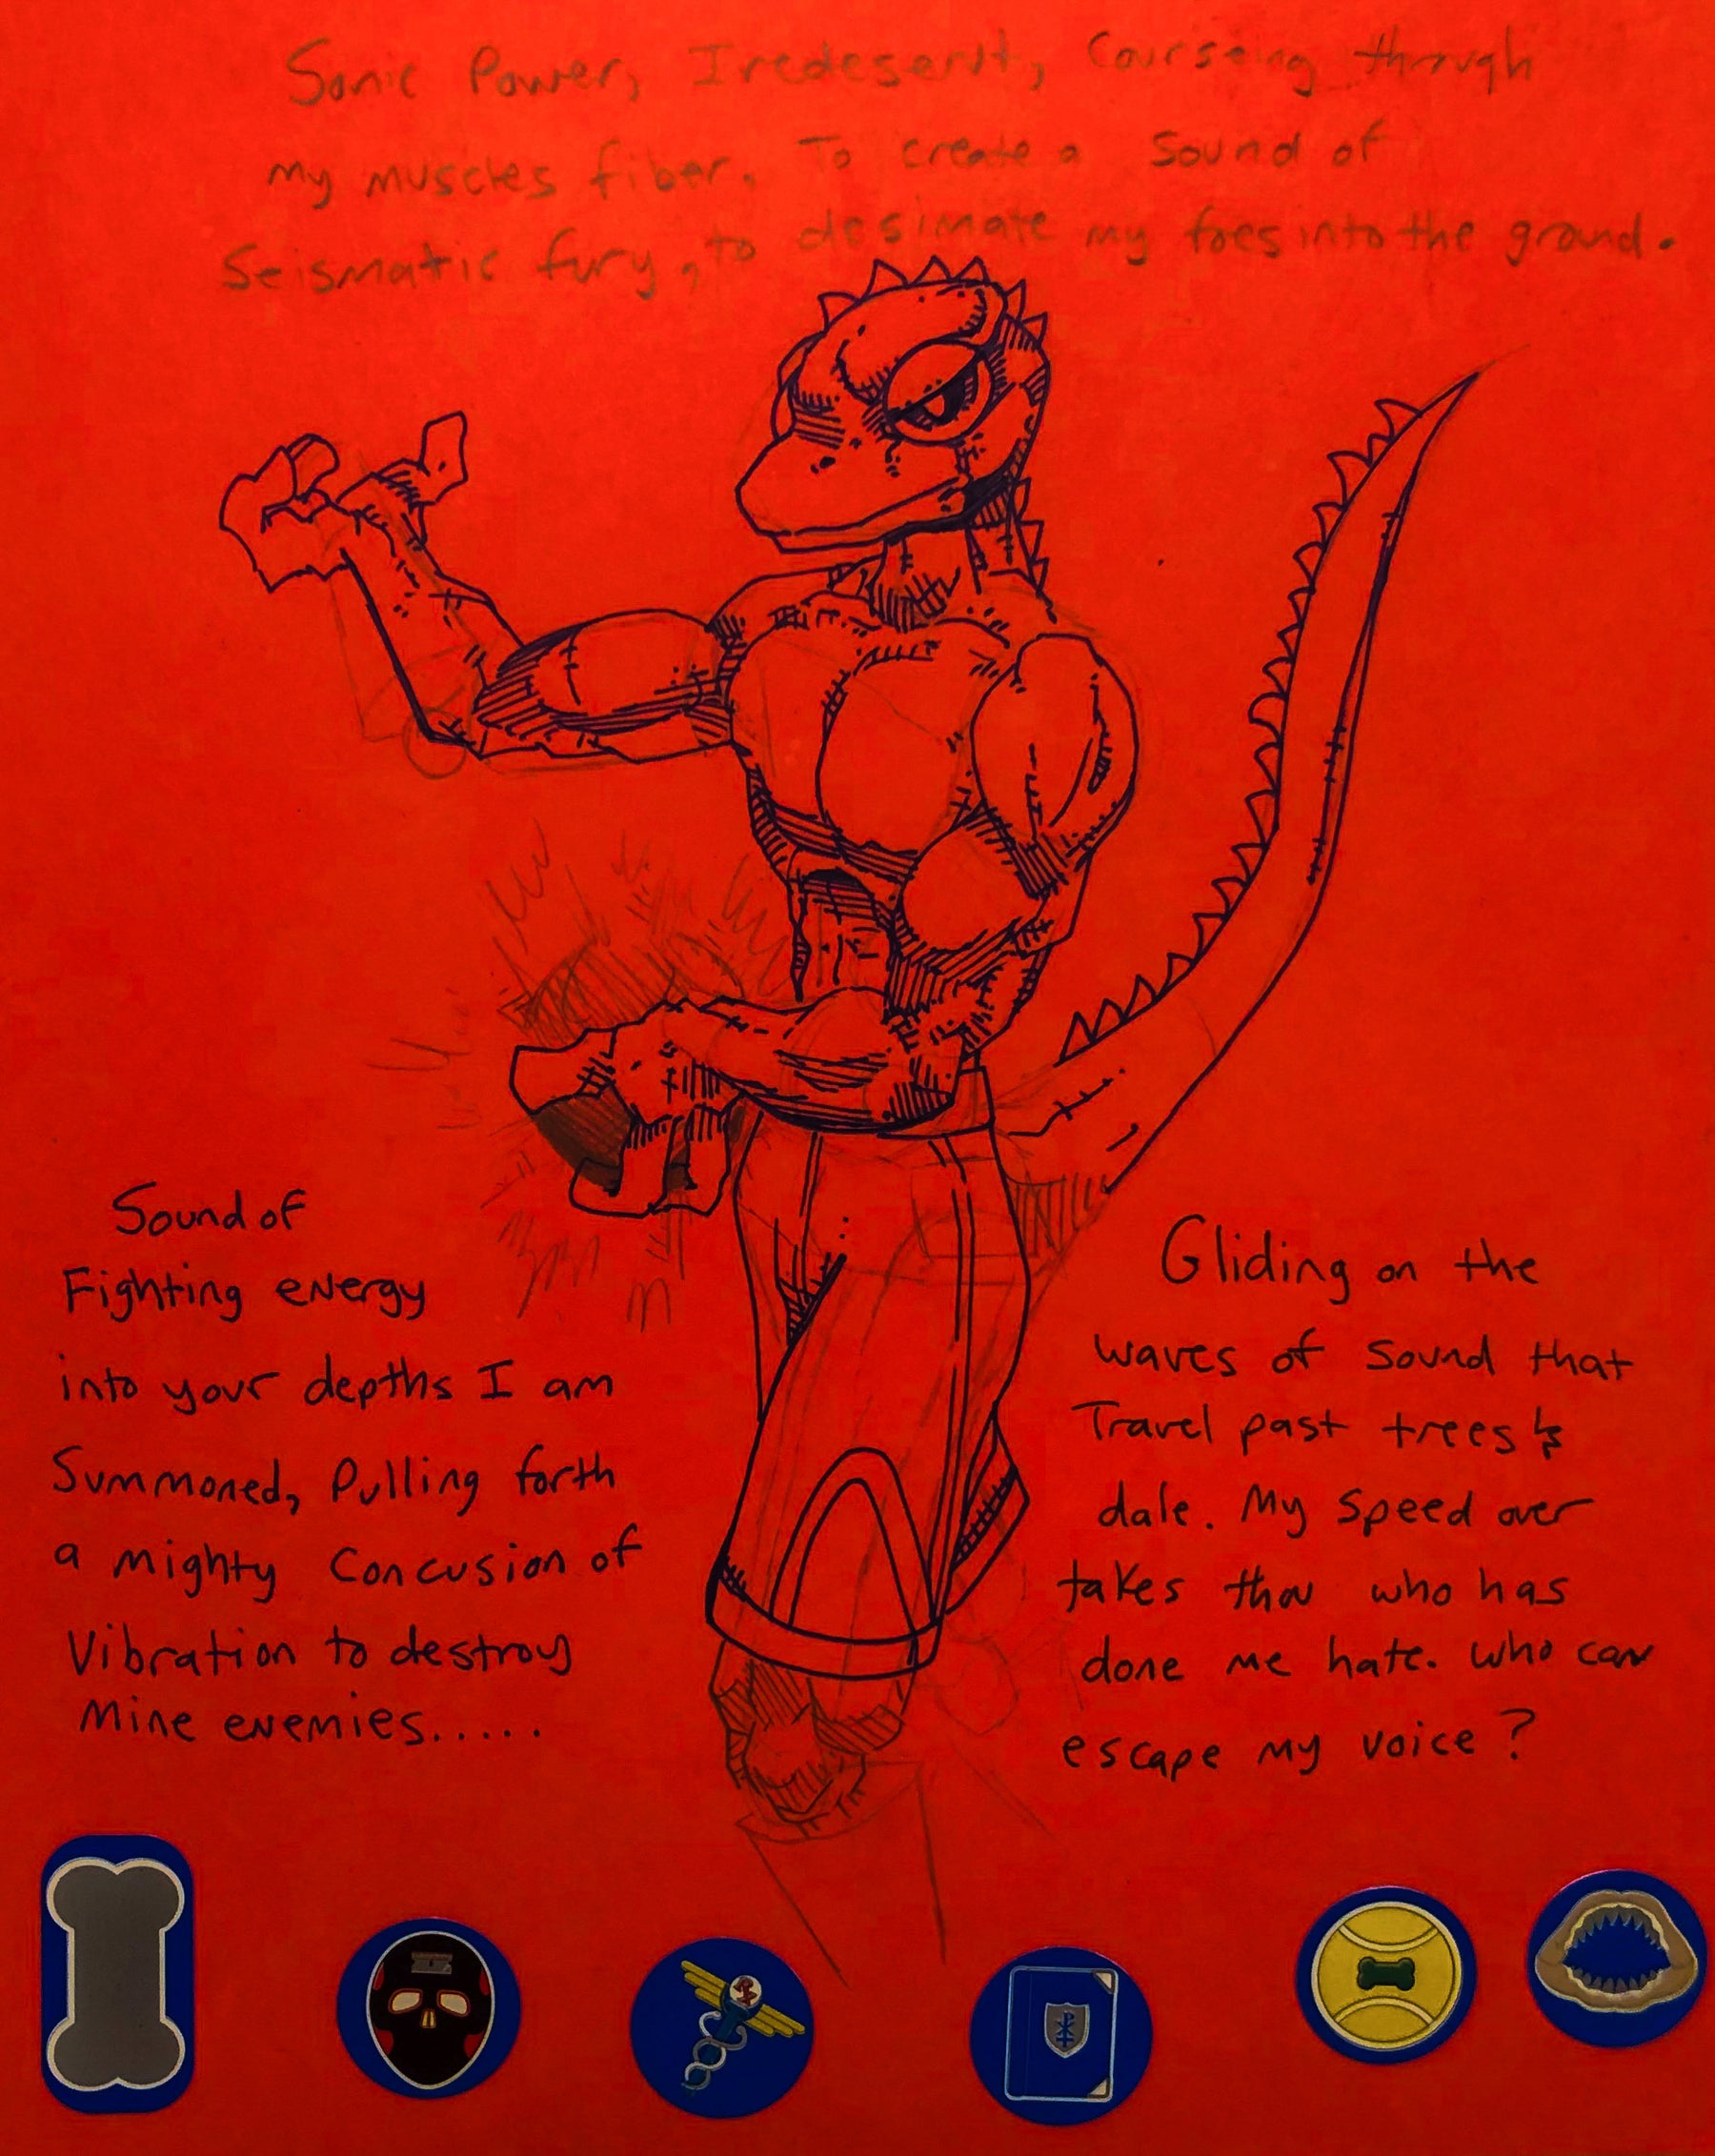 Sonic Power, Iredesent, Courseing through
my muscles fiber. To create a sound of
Seismatic fury, to desimate my foes into the ground.
Sound of
Fighting energy
into your depths I am
Summoned, Pulling forth
a mighty Concusion of
Vibration to destroy
Mine enemies.....
Gliding on the
waves of sound that
Travel past trees &
dale. My speed over
takes thou who has
done me hate. who can
escape my voice?